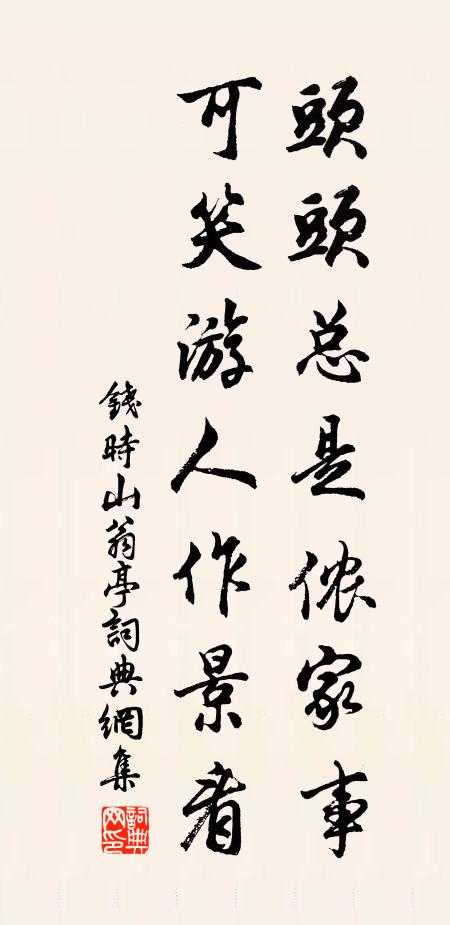 頭頭总是侬家事
可笑游人作景看
錢時山翁亭詞典網集
詞典网印